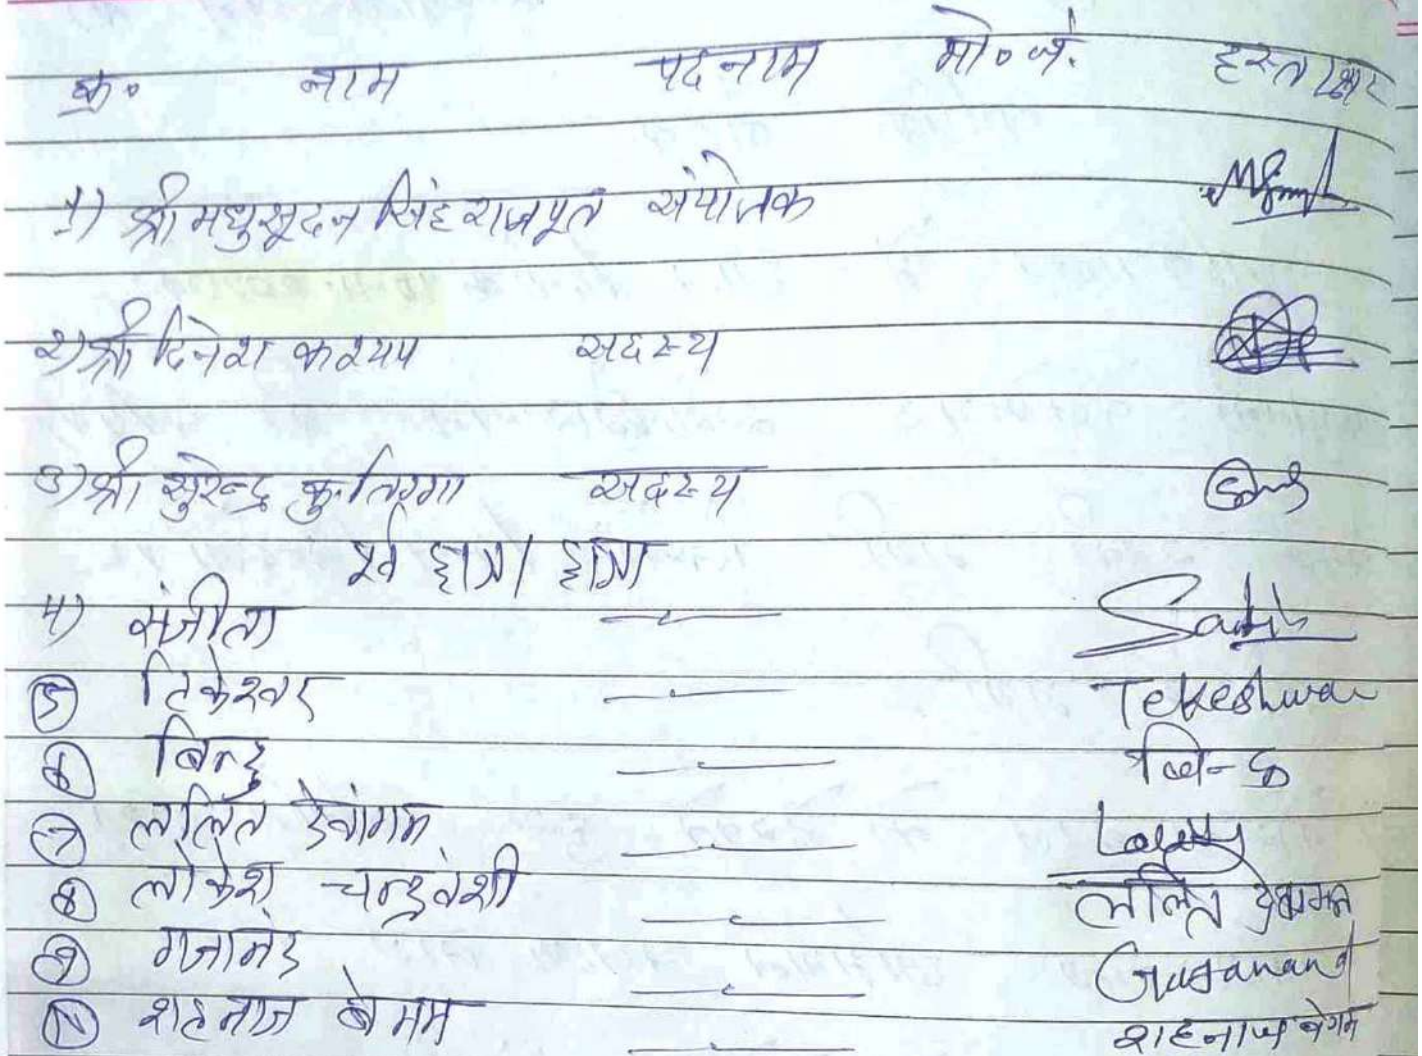 क्र॰ नाम पदनाम मो॰ नं. हस्ताक्षर
1) श्री मधुसूदन सिंह राजपूत संयोजक
2) श्री दिनेश कश्यप सदस्य
3) श्री सुरेन्द्र कु. तिरगा सदस्य
छात्र / छात्रा
4) संजीता
5 टिकेश्वर Tekeshwar
6 बिन्दु बिन्दु
7 ललित देवांगन
8 लोकेश चन्द्रवंशी ललित देवांगन
9 गजानंद Gajanand
10 शहनाज बेगम शहनाज बेगम